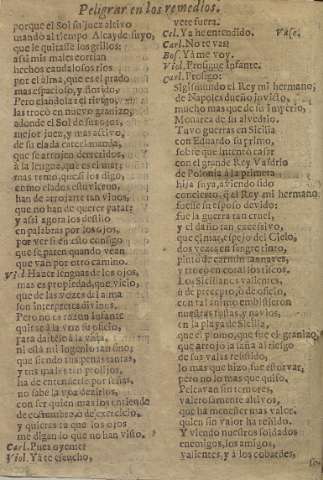 Peligrar en los remedios.
porque el Sol su juez altivo
usando al tiempo Alcayde suyo,
que le quitasse los grillos:
assi mis males corrian
hechos caudalosos rios
por el alma, que es el prado
mas espacioso, y florido,
Pero elandolas el riesgo,
las trocò en nuevo granizo,
adonde el Sol de sus ojos,
mejor juez, y mas activo,
de su elada carcel manda,
que se arrojen derretidos,
à la lengua, que es el mar:
mas temo, que si los digo,
como elados estuvieron,
han de arrojarte tan vivos,
que no han de querer parar
y assi agora los destilo
en palabras por los ojos,
por ver si en esto consigo
que se paren quando vean
que van por otro camino.
Viol. Hazer lenguas de los ojos,
mas es propiedad, que vicio,
que de las vozes del alma
son interpretes divinos.
Pero no es razon Infante
quitar à la voz su oficio,
para darsele à la vista,
ni està mi ingenio tan fino;
que siendo sus penas tantas,
y tus males tan prolijos,
ha de entenderte por señas,
no sabe la voz dezirlos,
con ser quien mas los entiende
de costumbre, ò de exercicio,
y quieres tu que los ojos
me digan lo que no han visto.
Carl. Pues oyeme
Viol. Ya te escucho,
vete fuera.
Cel. Ya he entendido. Vase.
Carl. No te vas?
Bof. Yà me voy.
Viol. Prosigue Infante.
Carl. Prosigo:
Sigismundo el Rey mi hermano;
de Napoles dueño invicto,
mucho mas que de su Imperio,
Monarca de su alvedrio.
Tuvo guerras en Sicilia
con Eduardo su primo,
sobre que intentò casar
con el grande Rey
de Polonia à la primera
hija suya, aviendo sido
concierto, q̃ el Rey mi hermano
fuesse su esposo devido;
fue la guerra tan cruel,
y el daño tan excessivo,
que el mar, espejo del Cielo,
dos vezes en sangre tinto,
pintò de carmin las naves,
y trocò en coral los riscos.
Los Sicilianos valientes,
ò de precepto, ò de oficio,
con tal animo embistieron
nuestras fustas, y navios,
en la playa de Sicilia,
que el plomo, que fue el granizo,
que arrojò la saña al riesgo
de sus valas resistido,
lo mas que hizo, fue estorvar,
pero no lo mas que quiso.
Peleavan sin temores,
valerosamente altivos,
que ha menester mas valor
quien sin valor ha reñido.
Y viendo nuestros soldados
enemigos, los amigos,
valientes, y à los cobardes,